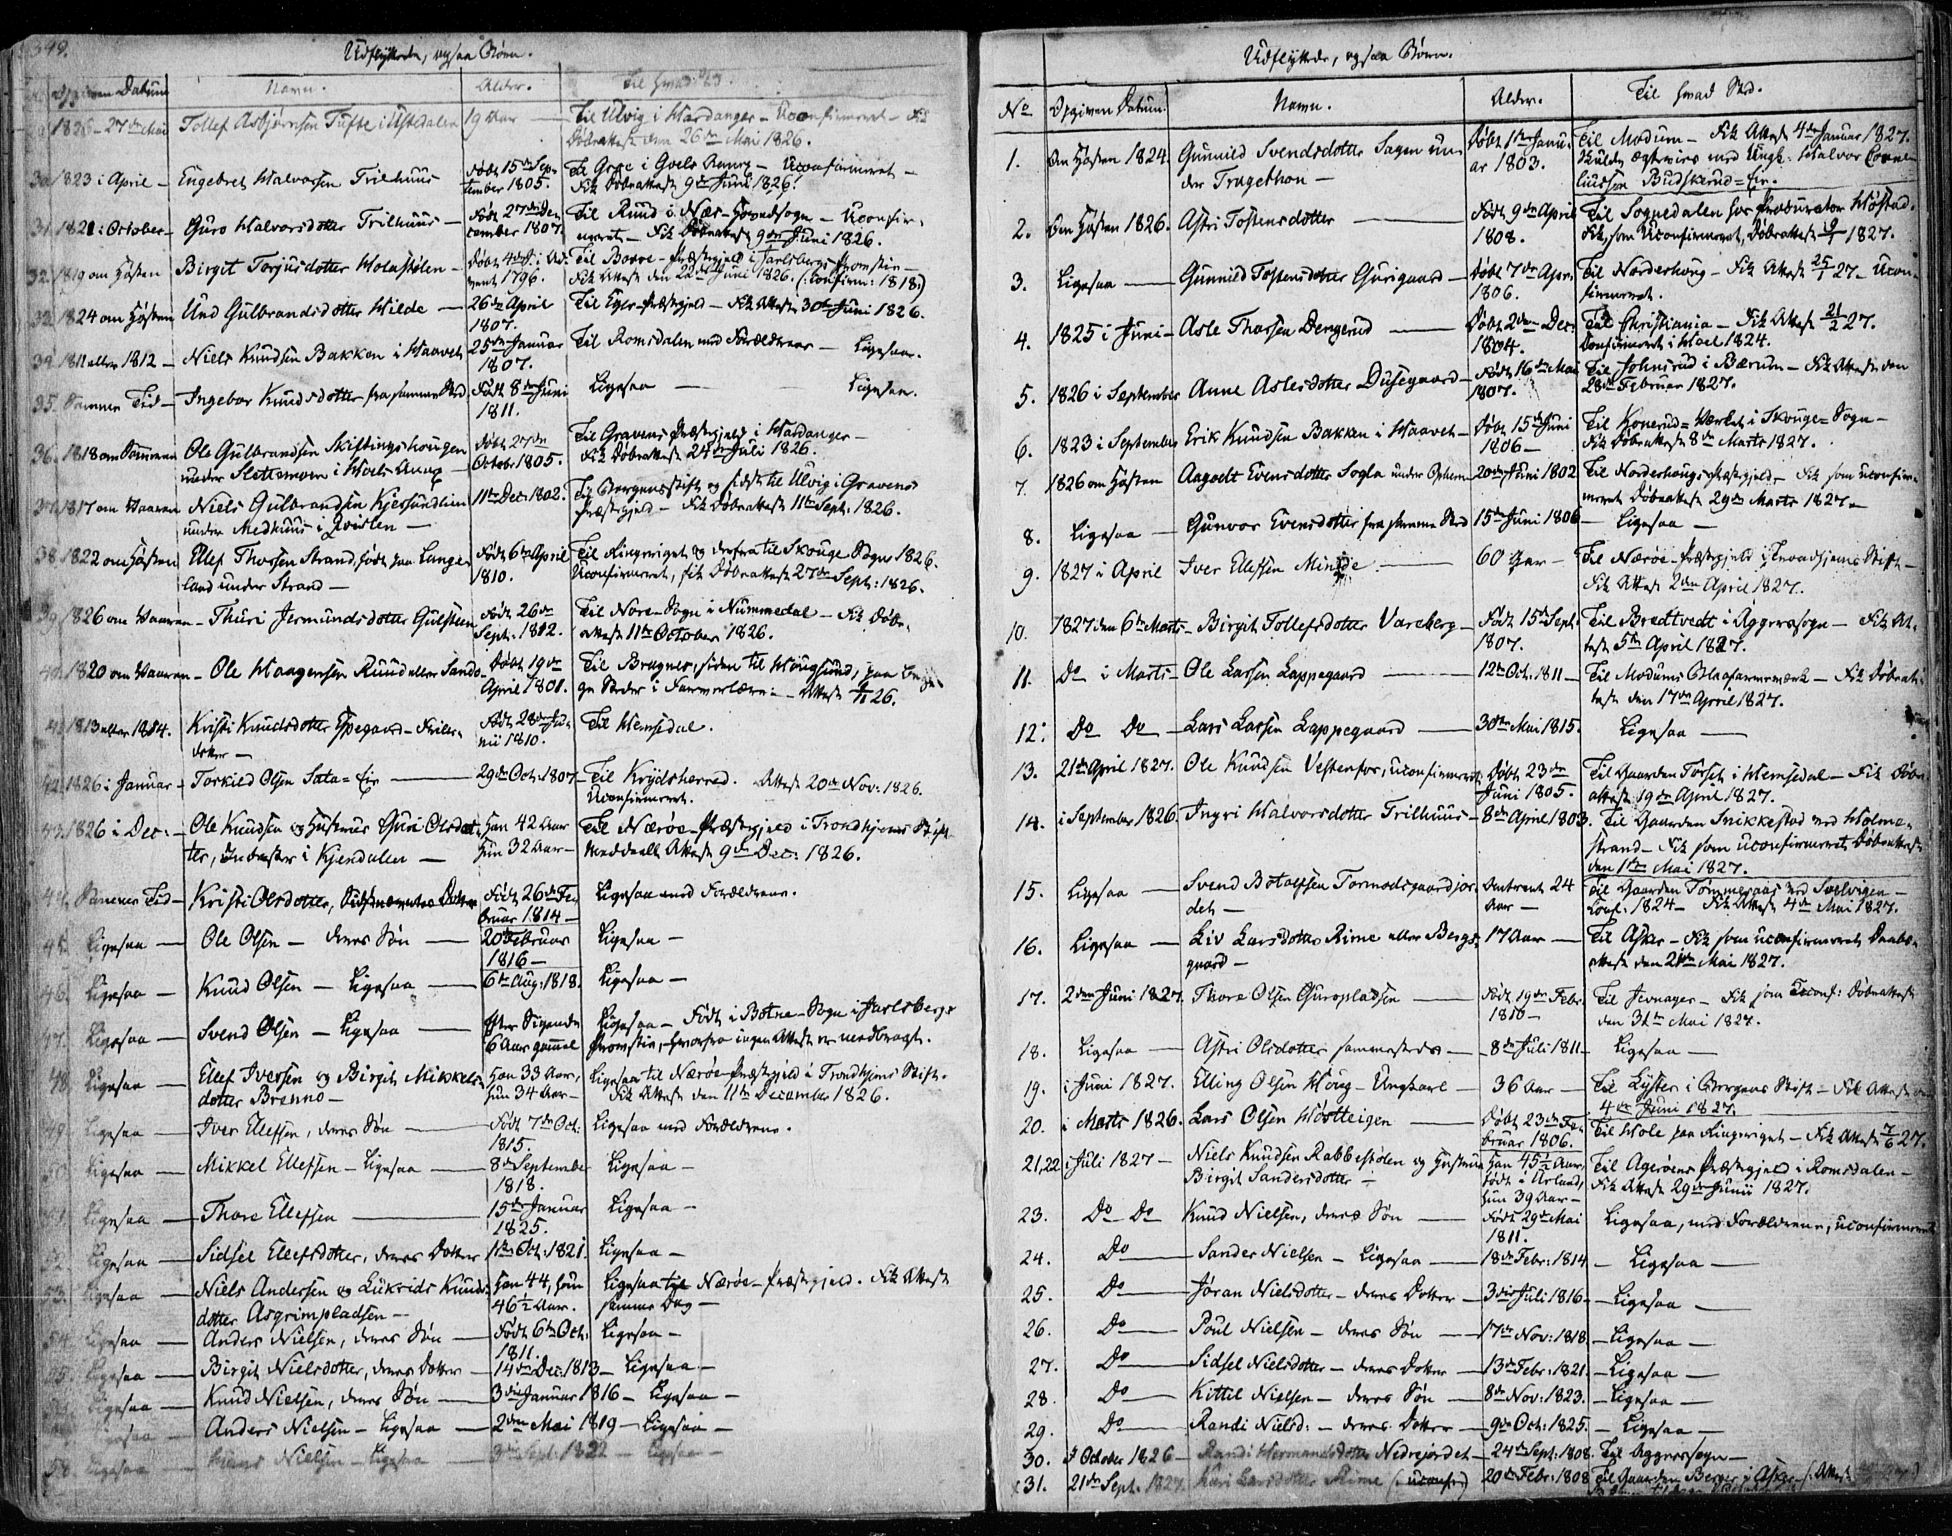 349.
Udflyttede, ogsaa Børn.
Opgiven Datum
Navn.
Alder.
Til hvad Sted.
1826 - 27de Mai
Tollef Asbjørnsen Tufte i Ustedalen
19 Aar -
Til Ulvig i Hardanger - Uconfirmeret - Fik
Døbeattest den 26de Mai 1826.
30. 1823 i April -
Engebret Halvorsen Trilhuus
Født 15de Sep-
tember 1805.
Uconfirmeret -
Fik Døbeattest 9de Juni 1826.
31. 1821: October -
Guro Halvorsdotter Trilhuus -
Født 27de De-
cember 1807.
Til Ruud i Næs-Hovedsogn - Uconfir-
meret - Fik Døbeattest 9de Juni 1826.
32. 1819 om Høsten
Birgit Torjusdotter Holastølen -
Døbt 4de S. i Ad-
vent 1796.
Til Borre-Præstegjeld i Jarlsbergs Provstie -
Fik Attest den 22de Juni 1826. (: Confirm: 1818:)
33. 1824 om Høsten
Und Gulbrandsdotter Hilde -
26de April
1807.
Til Eger-Præstegjeld - Fik Attest 30te Juni 1826.
34. 1811 eller 1812 -
Niels Knudsen Bakken i Haavet
25de Januar
1807.
Til Romsdalen med Forældrene - Ligesaa.
35. Samme Tid -
Ingebor Knudsdotter fra samme Sted
Født 8de Juni
1811.
Ligesaa - Ligesaa.
36. 1818 om Sommeren
Ole Gulbrandsen Skiftingshougen
under Slettemoen i Hoels Annex -
Født 27de
Octobr 1805.
Til Gravens Præstegjeld i Hardanger -
Fik Døbeattest 24de Juli 1826.
37. 1817 om Vaaren
Niels Gulbrandsen Kjersundlien
under Medhuus i Qvislen -
11te Dec: 1802.
Til Bergensstift og sidst til Ulvig i Gravens
Præstegjeld - Fik Døbeattest 11te Sept: 1826.
38. 1822 om Høsten
Ellef Thorsen Strand, født paa Lange-
land under Strand -
Født 6te April
1810.
Til Ringeriget og derfra til Skouge Sogn 1826.
Uconfirmeret, fik Døbeattest 27de Sept: 1826.
39. 1826 om Vaaren -
Thuri Jermundsdotter Gulsteen
Født 26de
Sept: 1812.
Til Nore-Sogn i Nummedal - Fik Døbe-
attest 11te October 1826.
40. 1820 om Vaaren -
Ole Haagensen Ruud eller Sando
Døbt 19de
April 1801.
Til Bragnes, siden til Hougsund, paa
Steder i Farverlære: - Attest 26.
41. 1813 eller 1814.
Kristi Knudsdotter Espegaard-
dotter -
Født 28de Ju-
nii 1810.
Til Hemsedal.
42. 1826 i Januar -
Torkild Olsen Sata=Eie
29de Oct: 1807
Til Krydsherred. Attest 20de Nov: 1826.
Uconfirmeret.
43. 1826 i Dec: -
Ole Knudsen og Hustrue Guri Olsdot-
ter, Inderster i Kjendalen -
Han 42 Aar
Hun 32 Aar -
Til Nærøe-Præstegjeld i Trondhjems Stift
Meddeelt Attest 9de Dec: 1826.
44. Samme Tid -
Kristi Olsdotter, Datter
Født 26de Fe-
bruar 1814 -
Ligesaa med Forældrene.
45. Ligesaa -
Ole Olsen - deres Søn -
20de Februar
1816 -
Ligesaa -
46. Ligesaa -
Knud Olsen - Ligesaa -
6te Aug: 1818.
Ligesaa -
47. Ligesaa -
Svend Olsen - Ligesaa -
Efter Sigende
6 Aar gammel
Ligesaa - Født i Botne-Sogn i Jarlsbergs
Provstie, hvorfra ingen Attest er medbragt.
48. Ligesaa -
Ellef Iversen og Birgit Mikkels-
dotter Brenno -
Han 33 Aar,
Hun 34 Aar -
Ligesaa til Nærøe-Præstegjeld i Trondhjems Stift.
Fik Attest den 11te December 1826.
49. Ligesaa -
Iver Ellefsen, deres Søn -
Født 7de Oct:
1815.
Ligesaa med Forældrene.
50. Ligesaa -
Mikkel Ellefsen - Ligesaa -
8de September
1818.
Ligesaa -
51. Ligesaa -
Thore Ellefsen
15de Januar
1825.
Ligesaa -
52. Ligesaa -
Sidsel Ellefsdotter, deres Dotter
1ste Oct: 1821.
Ligesaa -
53. Ligesaa -
Niels Andersen og Lukrids Knuds-
dotter Asgrimpladsen -
Han 44, Hun
46½ Aar.
Ligesaa til Nærøe-Præstegjeld. Fik Attest
samme Dag -
54. Ligesaa -
Anders Nielsen, deres Søn -
Født 6te Oct:
1811.
Ligesaa -
55. Ligesaa -
Birgit Nielsdotter, deres Dotter -
14de Dec: 1813 -
Ligesaa -
Ligesaa -
Knud Nielsen, deres Søn -
3die Januar 1816 -
Ligesaa -
Ligesaa -
Anders Nielsen - Ligesaa -
2den Mai 1819 -
Ligesaa -
58. Ligesaa -
Nielsen - Ligesaa -
3die Sept: 1822 -
Ligesaa -
Udflyttede, ogsaa Børn.
No
Opgiven Datum.
Navn.
Alder.
Til hvad Sted.
1.
Om Høsten 1824.
Gunnild Svendsdotter Sagen un-
der Trugethon -
Døbt 1ste Janu-
ar 1803.
Til Modum - Fik Attest 4de Januar 1827.
Skulde ægtevies med Ungk: Halvor Corne-
liussen Budskerud=Eie.
2.
Om Høsten 1826.
Astri Tostensdotter
Født 9de April
1808.
Til Sognedalen hos Procurator Høstad.
Fik, som Uconfirmeret, Døbeattest 1827.
3.
Ligesaa -
Gunnild Tostensdotter Gjurigaard -
Døbt 7de April
1806.
Til Norderhoug - Fik Attest 27 - Ucon-
firmeret.
4.
1825 i Juni -
Asle Thorsen Dengerud
Døbt 2den Dec:
1804.
Til Christiania - Fik Attest 21/2 27.
Confirmeret i Hoel 1824.
5.
1826 i September
Anne Aslesdotter Dusegaard -
Født 16de Mai
1807.
Til Johnsrud i Bærum - Fik Attest den
28de Februar 1827.
6.
1823 i September
Erik Knudsen Bakken i Haavet -
Døbt 15de Juni
1806 -
Til Konerud=Værket i Skouge=Sogn -
Fik Døbeattest 8de Marts 1827.
7.
1826 om Høsten
Aagodt Evensdotter Sogla under
20de Juni 1802
Til Norderhougs Præstegjeld - Fik som uconfir-
meret Døbeattest 29de Marts 1827.
8.
Ligesaa -
Gunvor Evensdotter fra samme Sted
15de Juni 1806
- Ligesaa -
9.
1827 i April
Iver Ellefsen Minde
60 Aar -
Til Nærøe-Præstegjeld i Trondhjems Stift -
Fik Attest 2den April 1827.
10.
1827 den 6te Marts -
Birgit Tollefsdotter Vareberg -
Født 15de Sept:
1807.
Til Bredtvedt i Aggersogn - Fik At-
test 5te April 1827.
11.
Do i Marts -
Ole Larsen Lappegaard
12te Oct: 1811 -
Til Modums Blaafarveværk - Fik Døbeat-
test den 17de April 1827.
12.
Do Do -
Lars Larsen Lappegaard
30te Mai 1815.
Ligesaa -
13.
21de April 1827.
Ole Knudsen Vestenfor, uconfirmeret
Døbt 23de
Juni 1805.
Til Gaarden Torset i Hemsedal - Fik Døbe-
attest 19de April 1827.
14.
i September 1826
Ingri Halvorsdotter Trilhuus -
8de April 1803.
Til Gaarden Snikkestad ved Holme-
strand - Fik som uconfirmeret Døbeattest
den 1ste Mai 1827.
15.
Ligesaa -
Svend Botolfsen Tormodsgaardjor-
det -
Omtrent 24
Aar -
Til Gaarden Tommeraas ved Svelvigen -
Conf: 1824 - Fik Attest 4de Mai 1827.
16.
Ligesaa -
Liv Larsdotter Rime eller Bergs-
gaard -
17 Aar -
Til Asker - Fik som uconfirmeret Daabs-
attest den 21de Mai 1827.
17.
2den Juni 1827.
Thore Olsen Guropladsen
Født 19de Febr.
1816 -
Til Jevnager - Fik som Uconf: Døbeattest
den 31te Mai 1827.
18.
Ligesaa -
Astri Olsdotter sammesteds -
8de Juli 1811 -
Ligesaa -
19.
i Juni 1827.
Elling Olsen Houg - Ungkarl -
36 Aar -
Til Lyster i Bergens Stift - Fik Attest
4de Juni 1827.
20.
i Marts 1826.
Lars Olsen Høstleigen
Døbt 23de Fe-
bruar 1806.
Til Hole paa Ringeriget - Fik Attest 7/6 27.
21,22
i Juli 1827 -
Niels Knudsen Rabbestølen og Hustrue
Birgit Sandersdotter -
Han 45½ Aar,
født i Urland,
Hun 39 Aar -
Til Agerøens Præstegjeld i Romsdalen -
Fik Attest 29de Junii 1827.
23.
Do Do
Knud Nielsen, deres Søn
Født 29de Mai
1811.
Ligesaa, med Forældrene, uconfirmeret
24.
Do
Sander Nielsen - Ligesaa -
18de Febr: 1814
- Ligesaa -
25.
Do
Jøran Nielsdotter - deres Dotter
3die Juli 1816 -
Ligesaa -
26.
Do
Poul Nielsen - deres Søn
17de Nov: 1818.
- Ligesaa -
27.
Do
Sidsel Nielsdotter - deres Dotter
13de Febr: 1821.
- Ligesaa -
28.
Do
Kittil Nielsen - deres Søn
8de Nov: 1823.
- Ligesaa -
29.
Do
Randi Nielsd: - deres Dotter
9de Oct: 1825.
- Ligesaa -
30.
I October 1826 -
Randi Hermandsdotter Nedrejordet
24de Sept: 1808.
Til Aggersogn -
31.
21de Sept: 1827.
Kari Larsdotter Rime (: uconfir:)
20de Febr: 1808
Til Gaarden Berger i Asker (: Attest